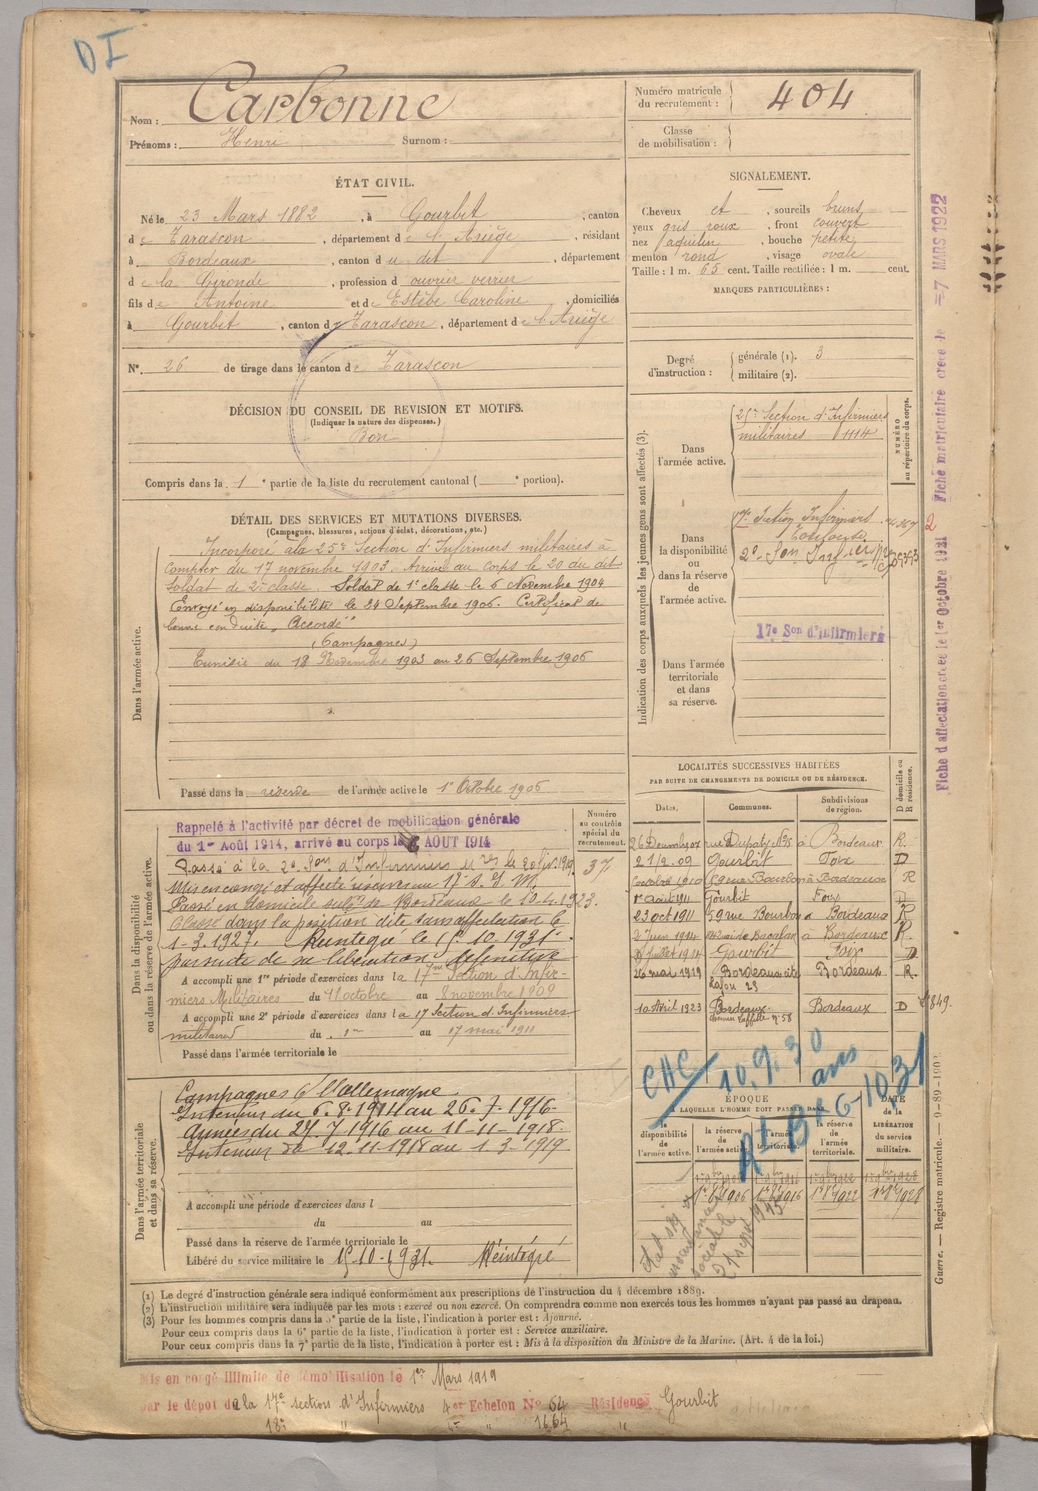 DI
Nom : Carbonne
Prénoms : Henri Surnom :
Numéro matricule du recrutement : 404
Classe de mobilisation :
ÉTAT CIVIL.
Né le 23 Mars 1882, à Gourbit, canton
de Tarascon, département de l'Ariège, résidant
à Bordeaux, canton du dit, département
de la Gironde, profession d ouvrier verrier
fils de Antoine et de Estèbe Caroline, domiciliés
à Gourbit, canton de Tarascon, département de l'Ariège
N°. 26 de tirage dans le canton de Tarascon
SIGNALEMENT.
Cheveux et, sourcils bruns
yeux gris roux, front couvert
nez aquilin, bouche petite
menton rond, visage ovale
Taille : 1 m. 65 cent. Taille rectifiée : 1 m. cent.
MARQUES PARTICULIÈRES :
Degré d'instruction : générale (1). 3
militaire (2).
DÉCISION DU CONSEIL DE REVISION ET MOTIFS.
(Indiquer la nature des dispenses.)
Bon
Compris dans la 1e partie de la liste du recrutement cantonal ( e portion).
DÉTAIL DES SERVICES ET MUTATIONS DIVERSES.
(Campagnes, blessures, actions d'éclat, décorations, etc.)
Dans l'armée active.
Incorporé à la 25e Section d'Infirmiers militaires à
compter du 17 novembre 1903. Arrivé au corps le 20 du dit
Soldat de 2e classe. Soldat de 1e classe le 6 Novembre 1904
Envoyé en disponibilité le 24 Septembre 1906. Certificat de
bonne conduite "Accordé"
(Campagnes)
Tunisie du 18 Novembre 1903 au 26 Septembre 1906
Passé dans la réserve de l'armée active le 1er Octobre 1906
Indication des corps auxquels les jeunes gens sont affectés (3).
NUMÉRO au répertoire du corps.
Dans l'armée active.
25e Section d'Infirmiers
militaires 1114
Dans la disponibilité ou dans la réserve de l'armée active.
17e Section Infirmiers
Toulouse
Dans l'armée territoriale et dans sa réserve.
17e Son d'Infirmiers
Dans la disponibilité ou dans la réserve de l'armée active.
Numéro au contrôle spécial du recrutement.
37
Rappelé à l'activité par décret de mobilisation générale
du 1er Août 1914, arrivé au corps le AOUT 1914
Passé en domicile de Bordeaux le 10.4.1923.
Classé dans la position dite sans affectation le
1-3.1927. Réintégré le 15.10.1931
libération définitive
A accompli une 1re période d'exercices dans la 17me Section d'Infir-
miers Militaires du 11 octobre au 8 novembre 1909
A accompli une 2e période d'exercices dans la 17 Section d'Infirmiers
militaires du 1er au 17 mai 1911
Passé dans l'armée territoriale le
LOCALITÉS SUCCESSIVES HABITÉES
PAR SUITE DE CHANGEMENTS DE DOMICILE OU DE RÉSIDENCE.
Dates. Communes. Subdivisions de région. D domicile ou R résidence.
rue Dupaty à Bordeaux R.
Gourbit Foix D
à Bordeaux R
1er août 1911 Gourbit Foix D
23 oct 1911 59 rue Bourbon à Bordeaux R
2 Juin 1914 à Bordeaux R.
Juillet 1914 Gourbit Foix D
26 mai 1919 Bordeaux Bordeaux R.
10 Avril 1923 Bordeaux Bordeaux D
CAC 10.9.30
ans
Dans l'armée territoriale et dans sa réserve.
Campagnes c/ l'allemagne
Intérieur du 6.8.1914 au 26.7.1916
Armées du 27.7.1916 au 11-11-1918.
Intérieur du 12.11.1918 au 1.3.1919
A accompli une période d'exercices dans l
du au
Passé dans la réserve de l'armée territoriale le
Libéré du service militaire le 15-10-1931. Réintégré
ÉPOQUE
À LAQUELLE L'HOMME DOIT PASSER DANS
la disponibilité de l'armée active.
la réserve de l'armée active.
l'armée territoriale.
la réserve de l'armée territoriale.
DATE de la LIBÉRATION du service militaire.
(1) Le degré d'instruction générale sera indiqué conformément aux prescriptions de l'instruction du 4 décembre 1889.
(2) L'instruction militaire sera indiquée par les mots : exercé ou non exercé. On comprendra comme non exercés tous les hommes n'ayant pas passé au drapeau.
(3) Pour les hommes compris dans la 5e partie de la liste, l'indication à porter est : Ajourné.
Pour ceux compris dans la 6e partie de la liste, l'indication à porter est : Service auxiliaire.
Pour ceux compris dans la 7e partie de la liste, l'indication à porter est : Mis à la disposition du Ministre de la Marine. (Art. 4 de la loi.)
Mis en congé illimité de démobilisation le 1er Mars 1919
par le dépôt de la 17e sections d'Infirmiers 4er Echelon No 64 Résidence Gourbit
Fiche matriculaire créée le =7 MARS 1922
Fiche d'affectation créée le 1er Octobre 1931
Guerre. — Registre matricule. — 9-89-1902